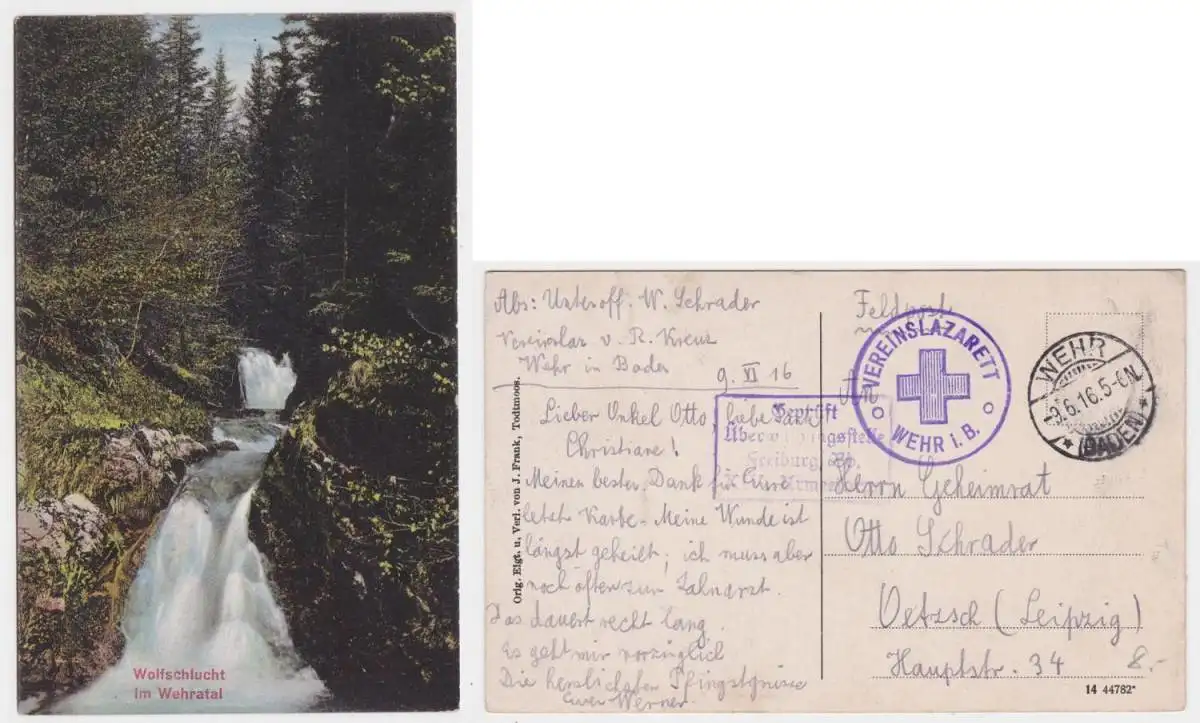 Wolfschlucht
im Wehratal
Abs: Unteroff. W. Schrader
Vereinslaz v. R. Kreuz
Wehr in Baden
9. VI 16
Lieber Onkel Otto, liebe Tante
Christiane!
Meinen besten Dank für Eure
letzt Karte. Meine Wunde ist
längst geheilt; ich muss aber
noch öfter zum Zahnarzt.
Das dauert recht lang.
Es geht mir vorzüglich
Die herzlichsten Pfingstgrüsse
Euer Werner.
Orig. Eigt. u. Verl. von J. Frank, Todtmoos.
Geprüft
Überwachungsstelle
Freiburg,
Feldpost
An
VEREINSLAZARETT
WEHR I. B.
WEHR
9.6.16.5-6N.
(BADEN)
Herrn Geheimrat
Otto Schrader
Oetzsch (Leipzig)
Hauptstr. 34
8.-
14 44782*